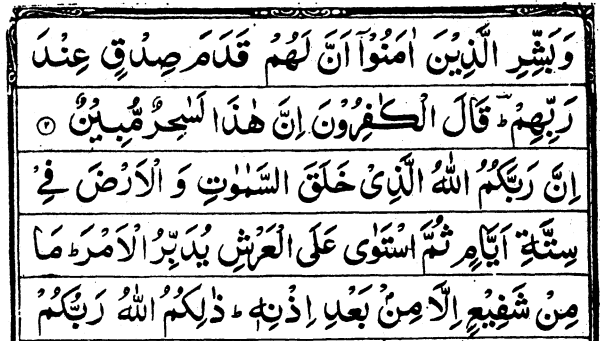 وَبَشِّرِ الَّذِیْنَ اٰمَنُوْۤا اَنَّ لَهُمْ قَدَمَ صِدْقٍ عِنْدَ
رَبِّهِمْ ؕ قَالَ الْكٰفِرُوْنَ اِنَّ هٰذَا لَسٰحِرٌ مُّبِیْنٌ ۝۲
اِنَّ رَبَّكُمُ اللّٰهُ الَّذِیْ خَلَقَ السَّمٰوٰتِ وَ الْاَرْضَ فِیْ
سِتَّةِ اَیَّامٍ ثُمَّ اسْتَوٰی عَلَی الْعَرْشِ یُدَبِّرُ الْاَمْرَ ؕ مَا
مِنْ شَفِیْعٍ اِلَّا مِنْۢ بَعْدِ اِذْنِهٖ ؕ ذٰلِكُمُ اللّٰهُ رَبُّكُمْ